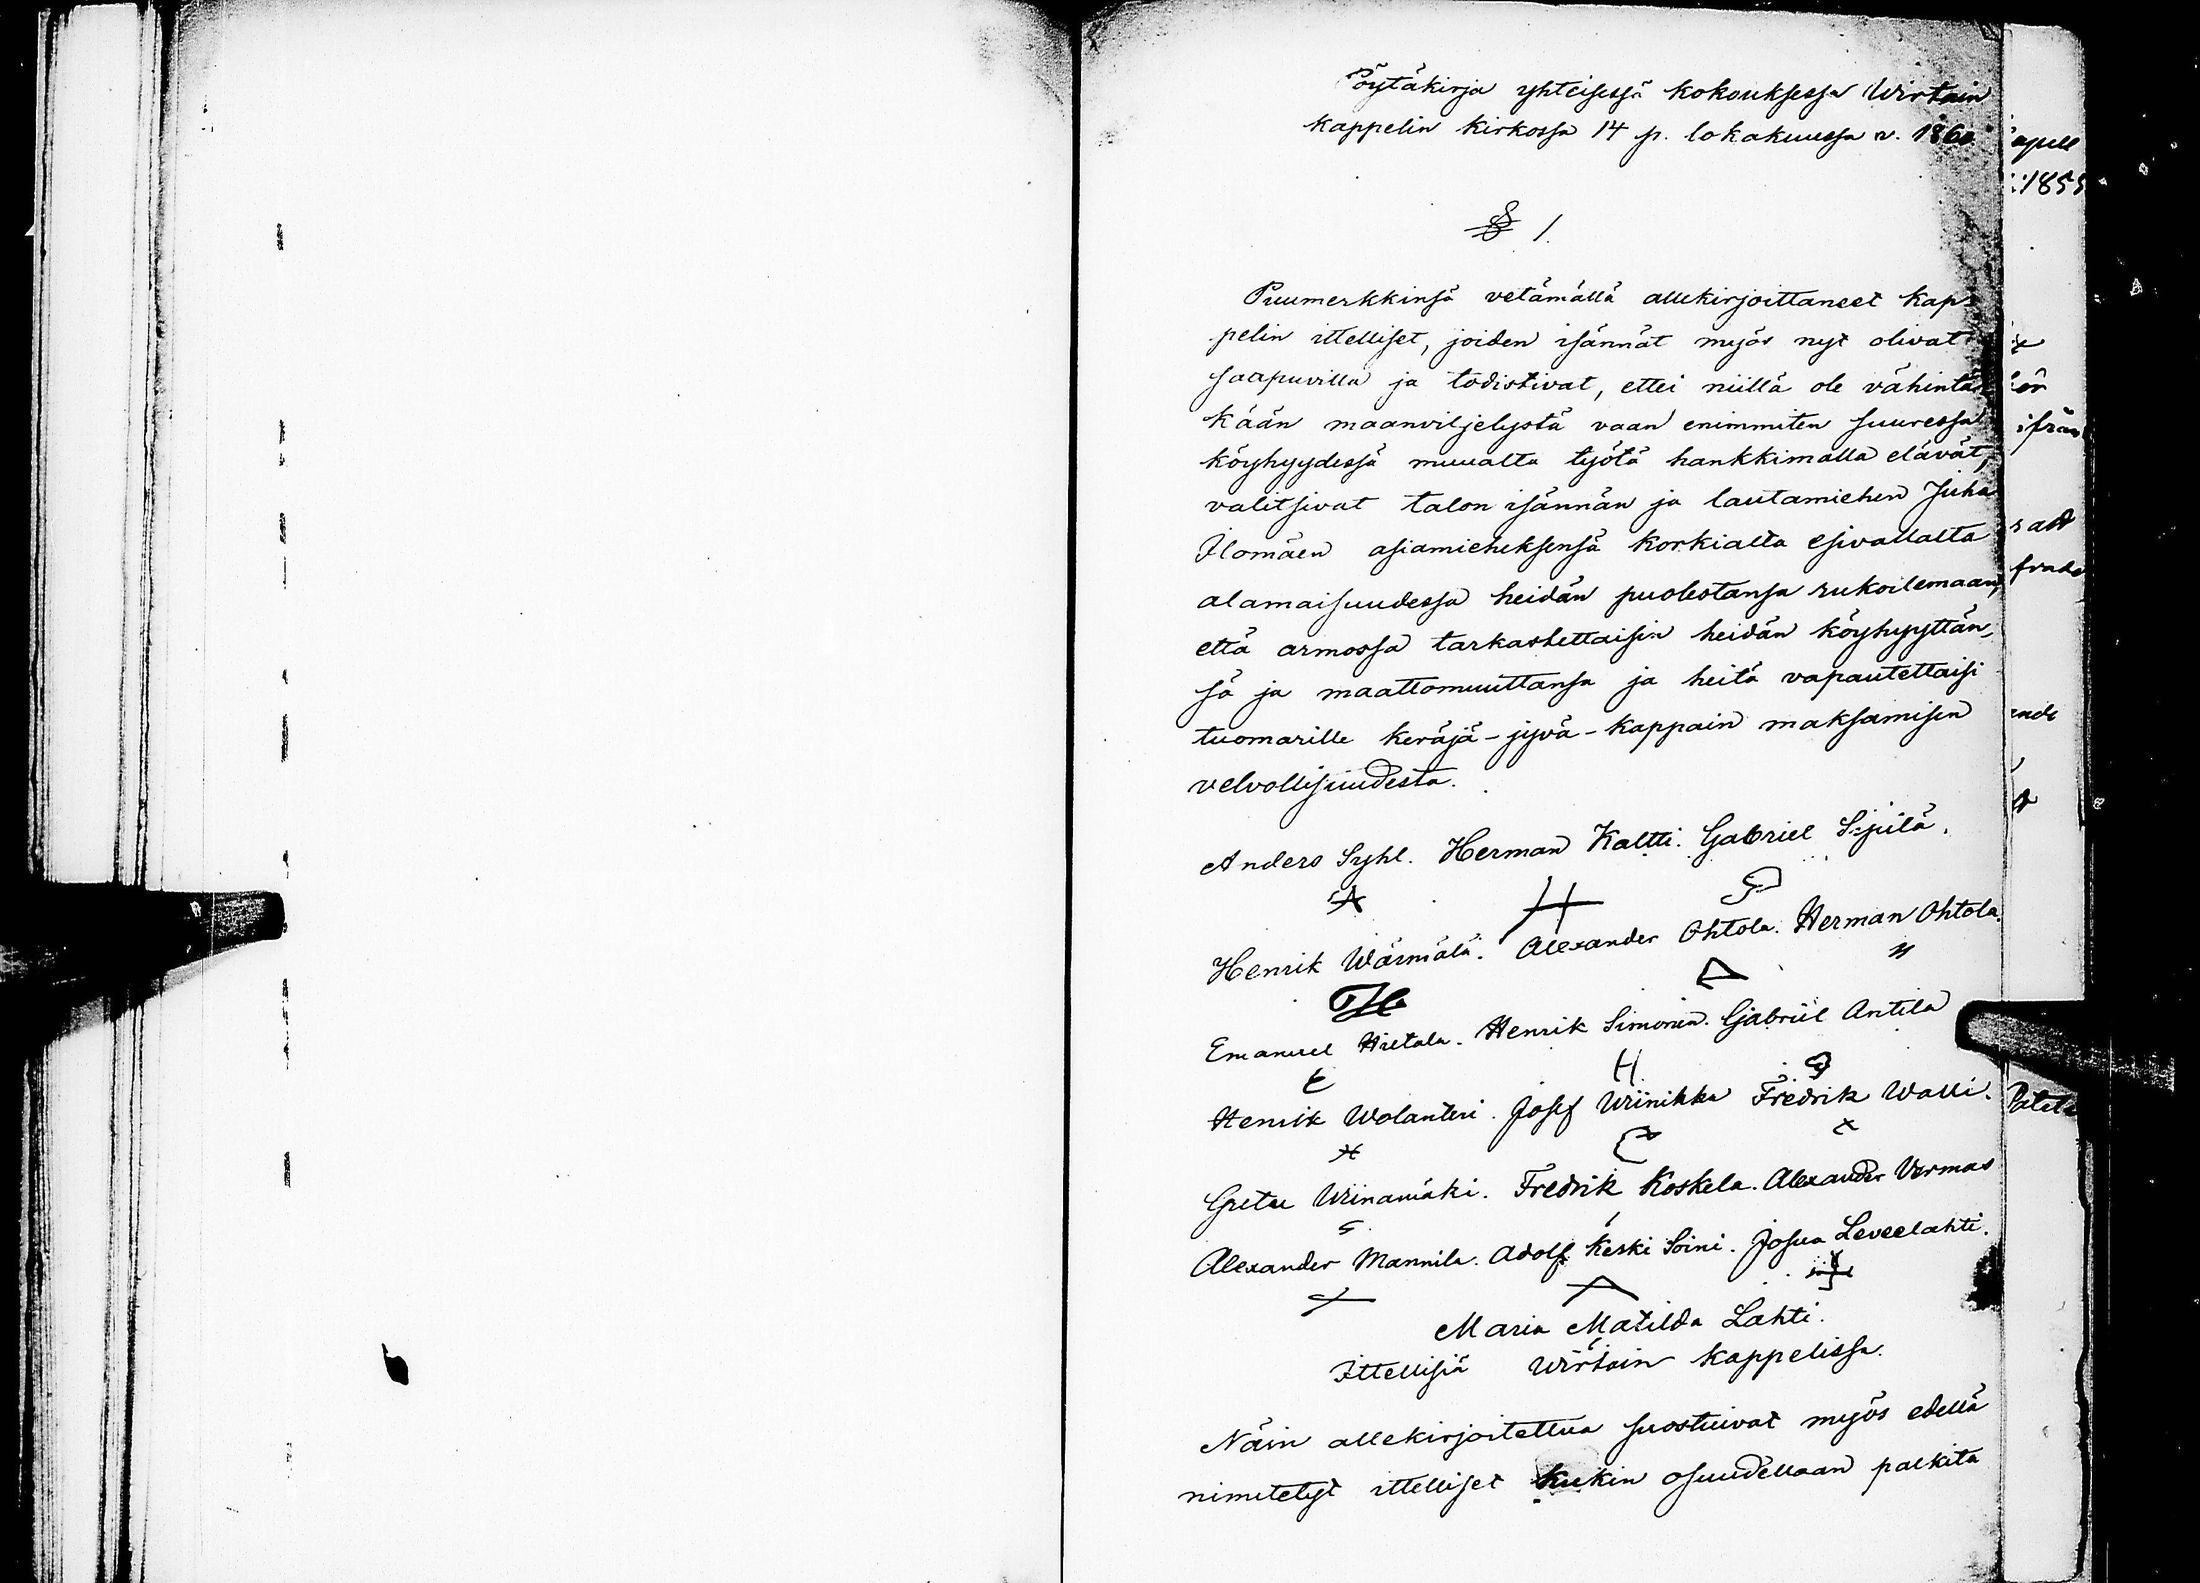 Pöytäkirja yhteisessä kokouksessa Wirtain
kappelin kirkossa 14 p. lokakuussa v. 1860
§ 1.
Puumerkkinsä vetämällä allekirjoittaneet kap-
pelin ittelliset, joiden isännät myös nyt olivat
saapuvilla ja todistivat, ettei niillä ole vähintä-
kään maanviljelystä vaan enimmiten suuressa
köyhyydessä muualta työtä hankkimalla elävät,
valitsivat talon isännän ja lautamiehen Juha
Ilomäen asiamieheksensä korkialta esivallalta
alamaisuudessa heidän puolestansa rukoilemaan,
että armossa tarkastettaisin heidän köyhyyttän-
sä ja maattomuuttansa ja heitä vapautettaisi
tuomarille keräjä-jyvä-kappain maksamisen
velvollisuudesta.
Anders Syhl. Herman Kaltti. Gabriel Sipilä.
Henrik Wärmälä. Alexander Ohtola. Herman Ohtola.
Emanuel Hietala. Henrik Simonen. Gabriel Antila
Henrik Wolanteri. Josef Wiinikka Fredrik Walli.
Greta Wiinamäki. Fredrik Koskela. Alexander Vermas
Alexander Mannila. Adolf Keski Soini. Josua Leveelahti.
Maria Matilda Lahti.
Ittellisiä Wirtain kappelissa.
Näin allekirjoitettua suostuivat myös edellä
nimitetyt ittelliset kukin osuudellaan palkita
1855